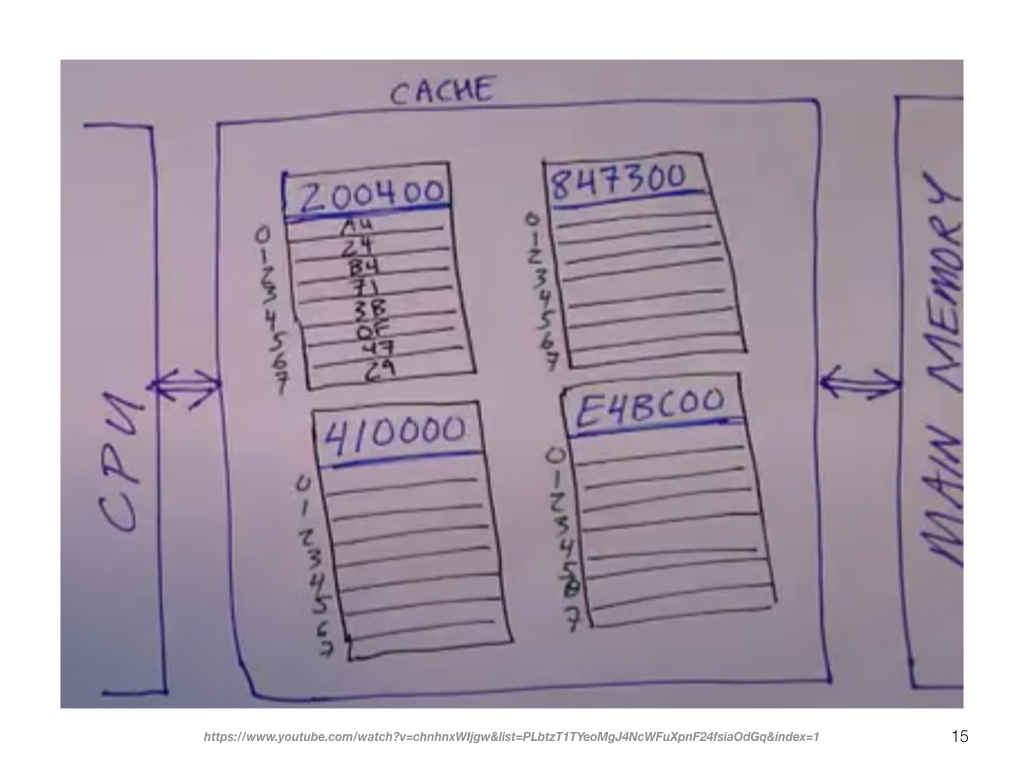 CACHE
200400
0 A4
1 24
2 B4
3 71
4 3B
5 0F
6 47
7 29
847300
0
1
2
3
4
5
6
7
410000
0
1
2
3
4
5
6
7
E4BC00
0
1
2
3
4
5
6
7
CPU
MAIN MEMORY
https://www.youtube.com/watch?v=chnhnxWIjgw&list=PLbtzT1TYeoMgJ4NcWFuXpnF24fsiaOdGq&index=1
15